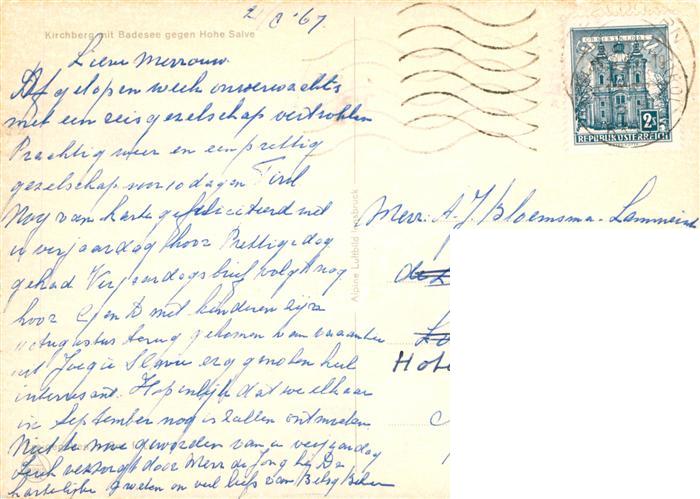 2/8 '67.
Kirchberg mit Badesee gegen Hohe Salve
Lieve Mevrouw.
Afgelopen week onverwachts
met een reisgezelschap vertrokken
Prachtig weer en een prettig
gezelschap voor 10 dagen Tirol
Nog van harte gefeliciteerd met
uw verjaardag hoor Prettige dag
gehad Verjaardagsbrief volgt nog
hoor en met kinderen zijn
Augustus terug gekomen van vacantie
uit Joegio Slavie erg genoten heel
interessant. Hopenlijk dat we elkaar
in September nog zullen ontmoeten
Niet te moe geworden van uw verjaardag
Leuk verzorgd door Mevr de Jong hè Da
hartelijke groeten en veel liefs van
Mevr. A. J. Bloemsma-Lammeirs
Hote
Alpine Luftbild Innsbruck
REPUBLIK ÖSTERREICH
2 S